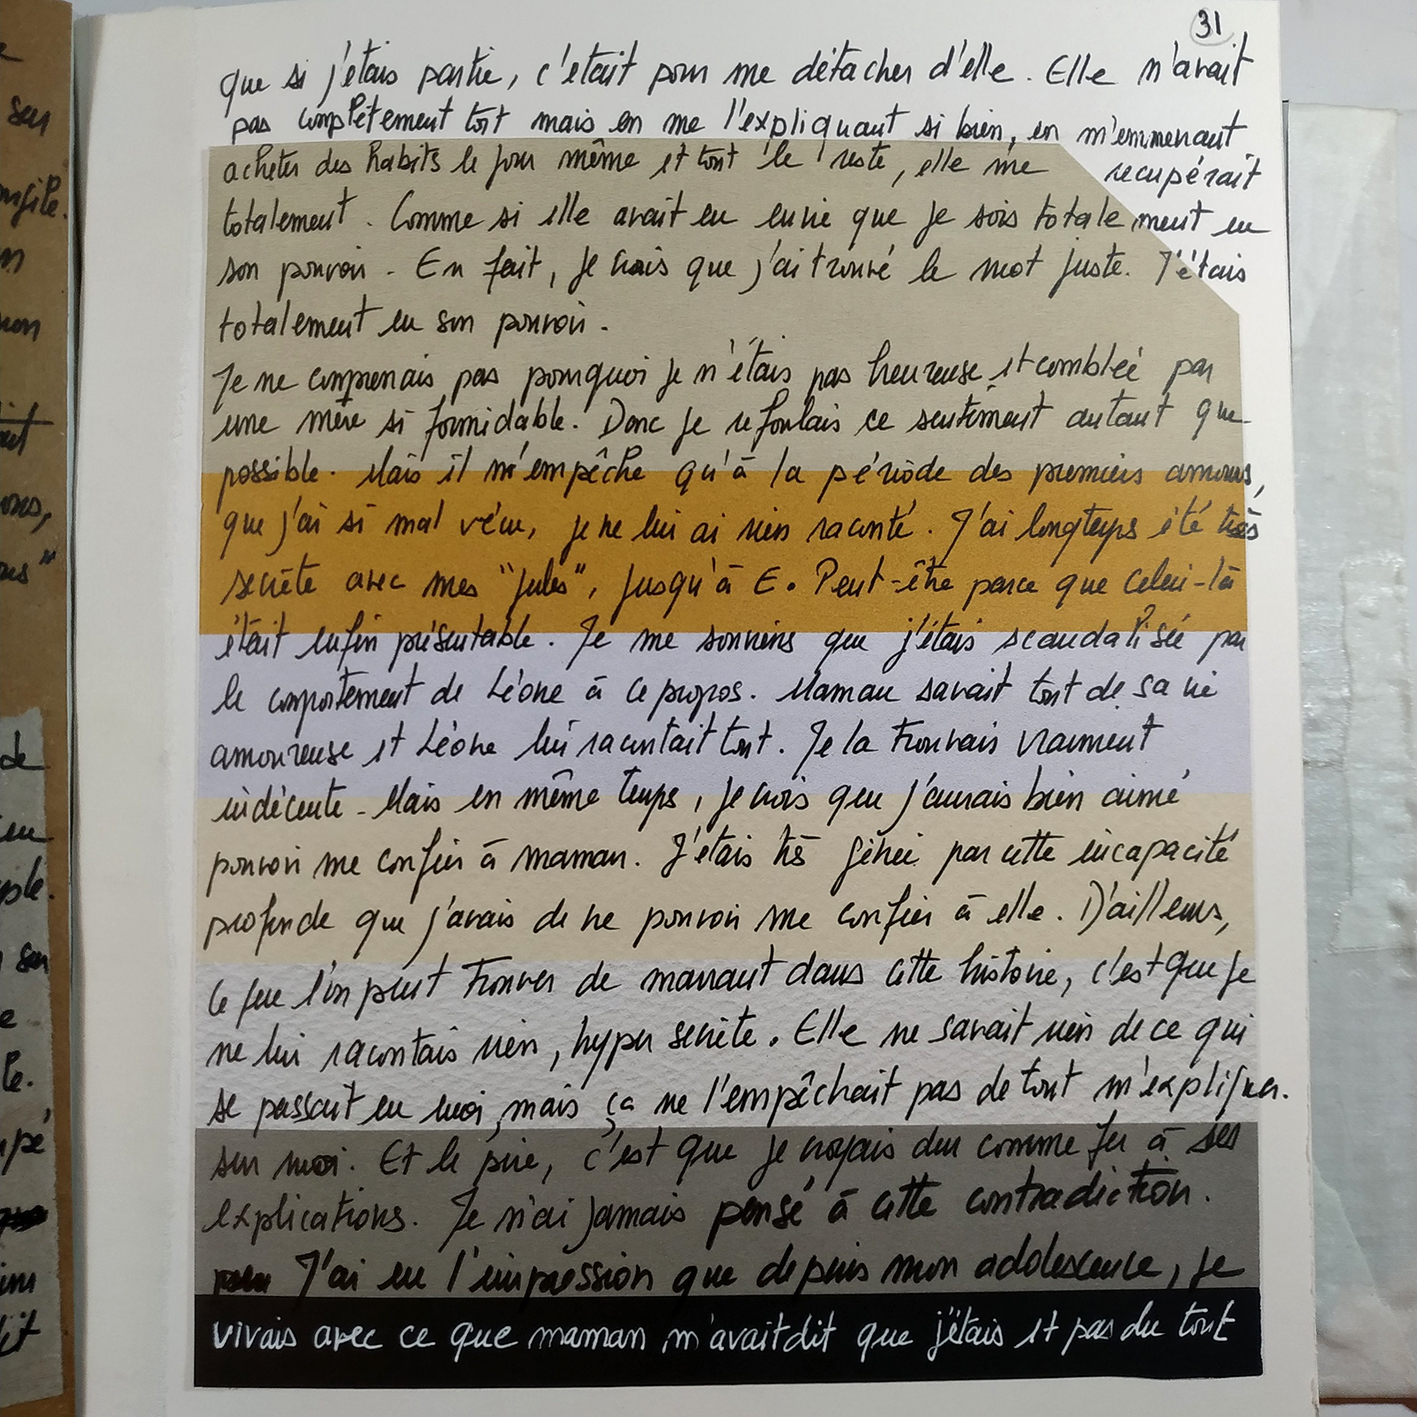 31
que si j'étais partie, c'était pour me détacher d'elle. Elle n'avait
pas complètement tort mais en me l'expliquant si bien, en m'emmenant
acheter des habits le jour même et tout le reste, elle me récupérait
totalement. Comme si elle avait eu envie que je sois totalement en
son pouvoir. En fait, je crois que j'ai trouvé le mot juste. J'étais
totalement en son pouvoir.
Je ne comprenais pas pourquoi je n'étais pas heureuse et comblée par
une mère si formidable. Donc je refoulais ce sentiment autant que
possible. Mais il m'empêche qu'à la période des premiers amours,
que j'ai si mal vécu, je ne lui ai rien raconté. J'ai longtemps été très
secrète avec mes "Jules", jusqu'à E. Peut-être parce que celui-là
était enfin présentable. Je me souviens que j'étais scandalisée par
le comportement de Léone à ce propos. Maman savait tout de sa vie
amoureuse et Léone lui racontait tout. Je la trouvais vraiment
indécente. Mais en même temps, je crois que j'aurais bien aimé
pouvoir me confier à maman. J'étais très gênée par cette incapacité
profonde que j'avais de ne pouvoir me confier à elle. D'ailleurs,
ce que l'on peut trouver de marrant dans cette histoire, c'est que je
ne lui racontais rien, hyper secrète. Elle ne savait rien de ce qui
se passait en moi, mais ça ne l'empêchait pas de tout m'expliquer
sur moi. Et le pire, c'est que je croyais dur comme fer à ses
explications. Je n'ai jamais pensé à cette contradiction.
J'ai eu l'impression que depuis mon adolescence, je
vivais avec ce que maman m'avait dit que j'étais et pas du tout